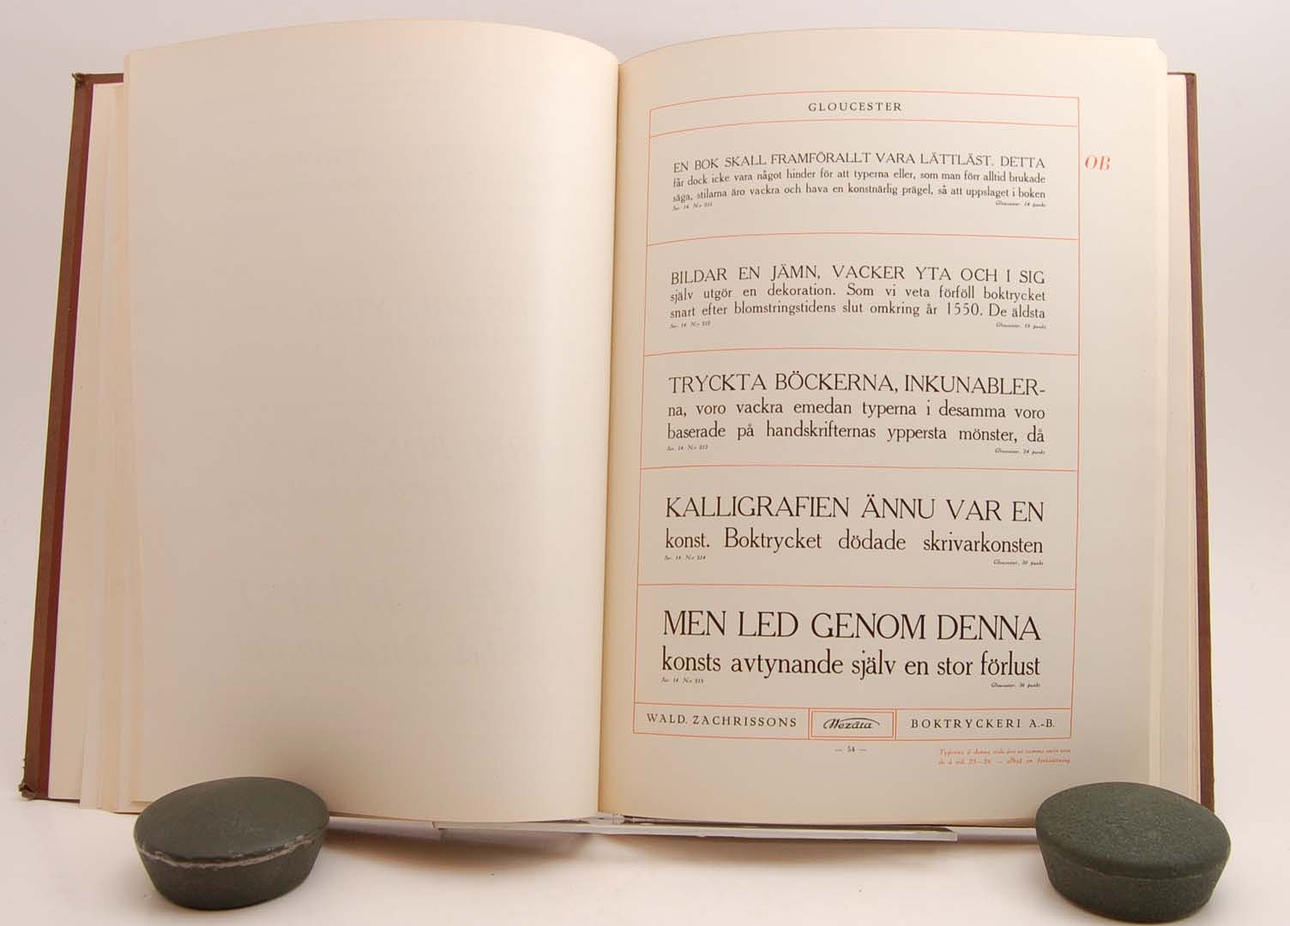 GLOUCESTER
OB
EN BOK SKALL FRAMFÖRALLT VARA LÄTTLÄST. DETTA
får dock icke vara något hinder för att typerna eller, som man förr alltid brukade
säga, stilarna äro vackra och hava en konstnärlig prägel, så att uppslaget i boken
Ser. 14 N:r 511 Gloucester. 14 punkt
BILDAR EN JÄMN, VACKER YTA OCH I SIG
själv utgör en dekoration. Som vi veta förföll boktrycket
snart efter blomstringstidens slut omkring år 1550. De äldsta
Ser. 14 N:r 512 Gloucester. 18 punkt
TRYCKTA BÖCKERNA, INKUNABLER-
na, voro vackra emedan typerna i desamma voro
baserade på handskrifternas yppersta mönster, då
Ser. 14 N:r 513 Gloucester. 24 punkt
KALLIGRAFIEN ÄNNU VAR EN
konst. Boktrycket dödade skrivarkonsten
Ser. 14 N:r 514 Gloucester. 30 punkt
MEN LED GENOM DENNA
konsts avtynande själv en stor förlust
Ser. 14 N:r 515 Gloucester. 36 punkt
WALD. ZACHRISSONS Wezäta BOKTRYCKERI A.-B.
— 54 —
Typerna å denna sida äro av samma
de å sid. 25—26 — alltså en fortsättning